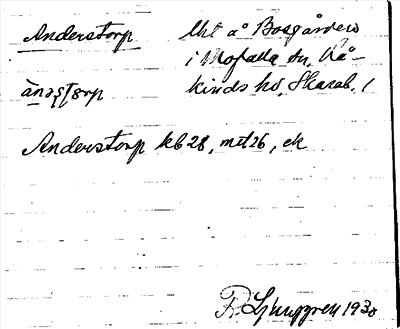 Anderstorp
Uht å Bosgården
i Mofalla sn, Kå-
kinds hd, Skarab. l
Anderstorp kb28, mt26, ek
R Ljunggren 1930